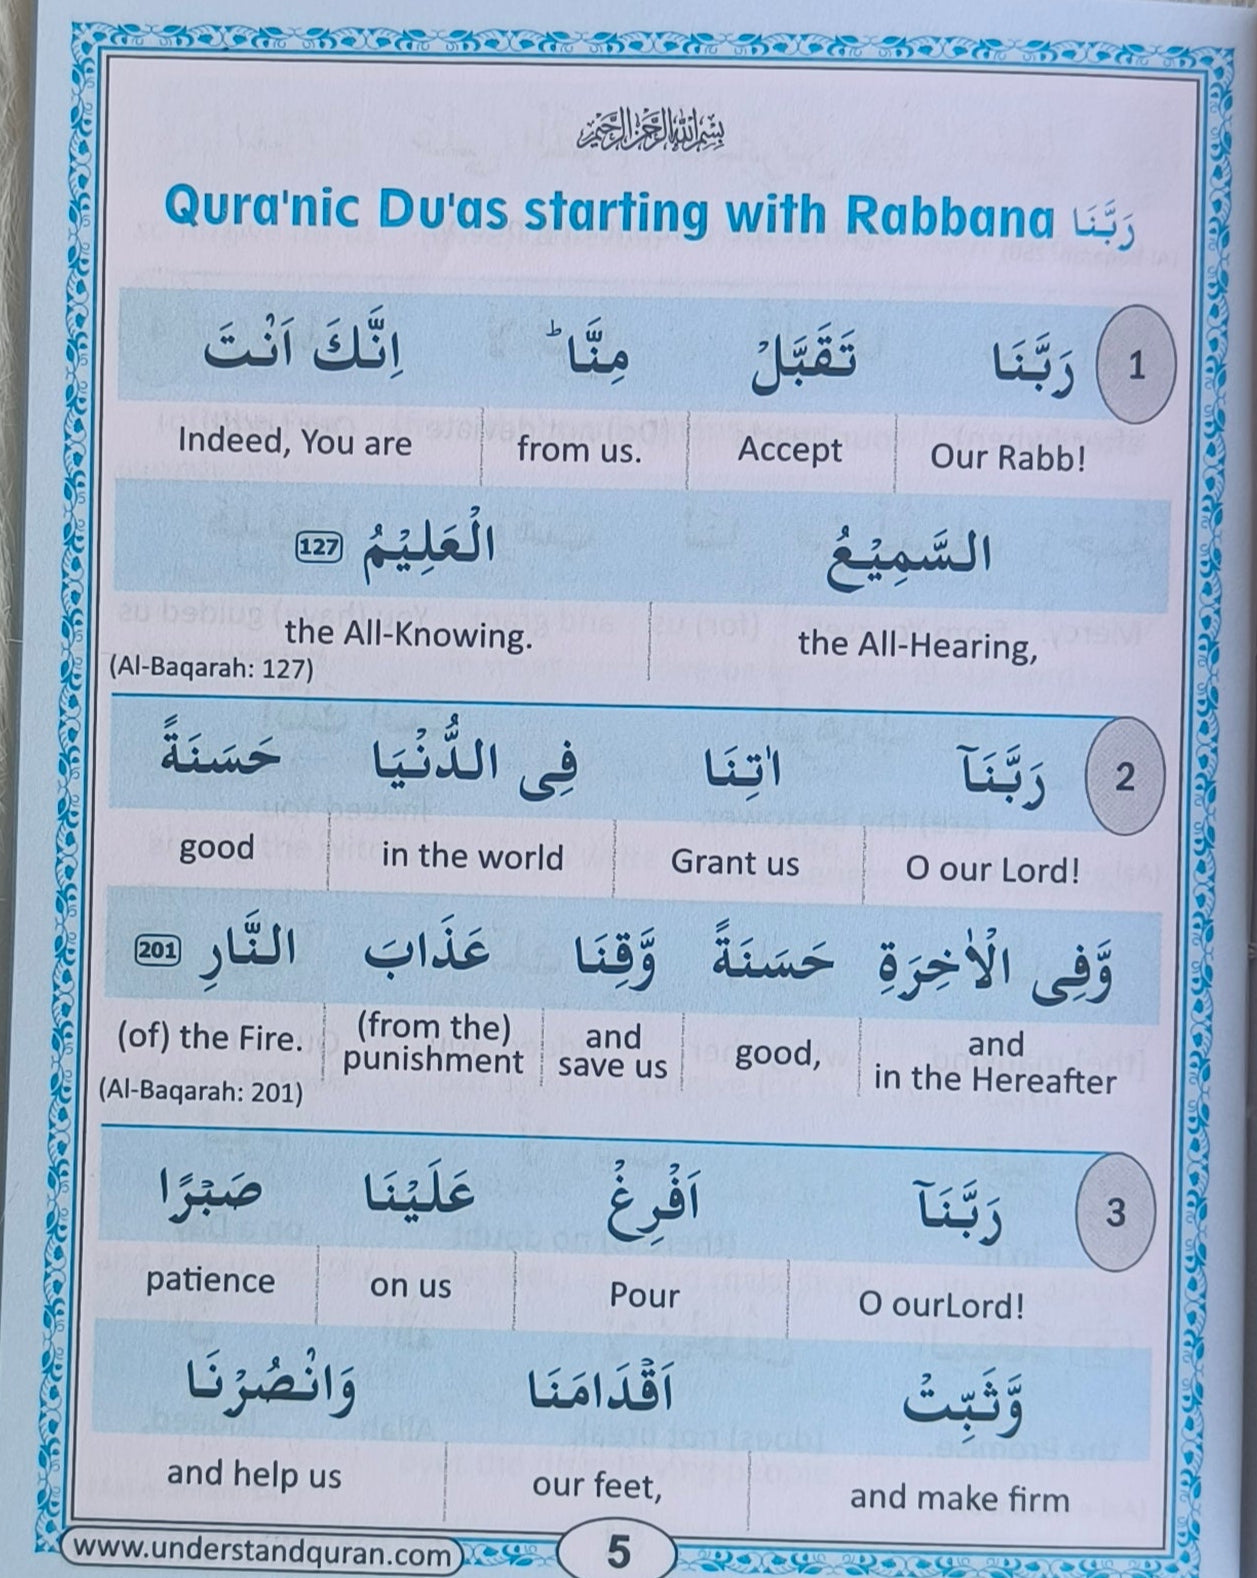 بِسْمِ اللهِ الرَّحْمٰنِ الرَّحِيْمِ
Qura'nic Du'as starting with Rabbana رَبَّنَا
1 رَبَّنَا تَقَبَّلْ مِنَّا ؕ اِنَّكَ اَنْتَ
Our Rabb! Accept from us. Indeed, You are
السَّمِيْعُ الْعَلِيْمُ 127
the All-Hearing, the All-Knowing.
(Al-Baqarah: 127)
2 رَبَّنَآ اٰتِنَا فِى الدُّنْيَا حَسَنَةً
O our Lord! Grant us in the world good
وَّفِى الْاٰخِرَةِ حَسَنَةً وَّقِنَا عَذَابَ النَّارِ 201
and in the Hereafter good, and save us (from the) punishment (of) the Fire.
(Al-Baqarah: 201)
3 رَبَّنَآ اَفْرِغْ عَلَيْنَا صَبْرًا
O ourLord! Pour on us patience
وَّثَبِّتْ اَقْدَامَنَا وَانْصُرْنَا
and make firm our feet, and help us
www.understandquran.com 5